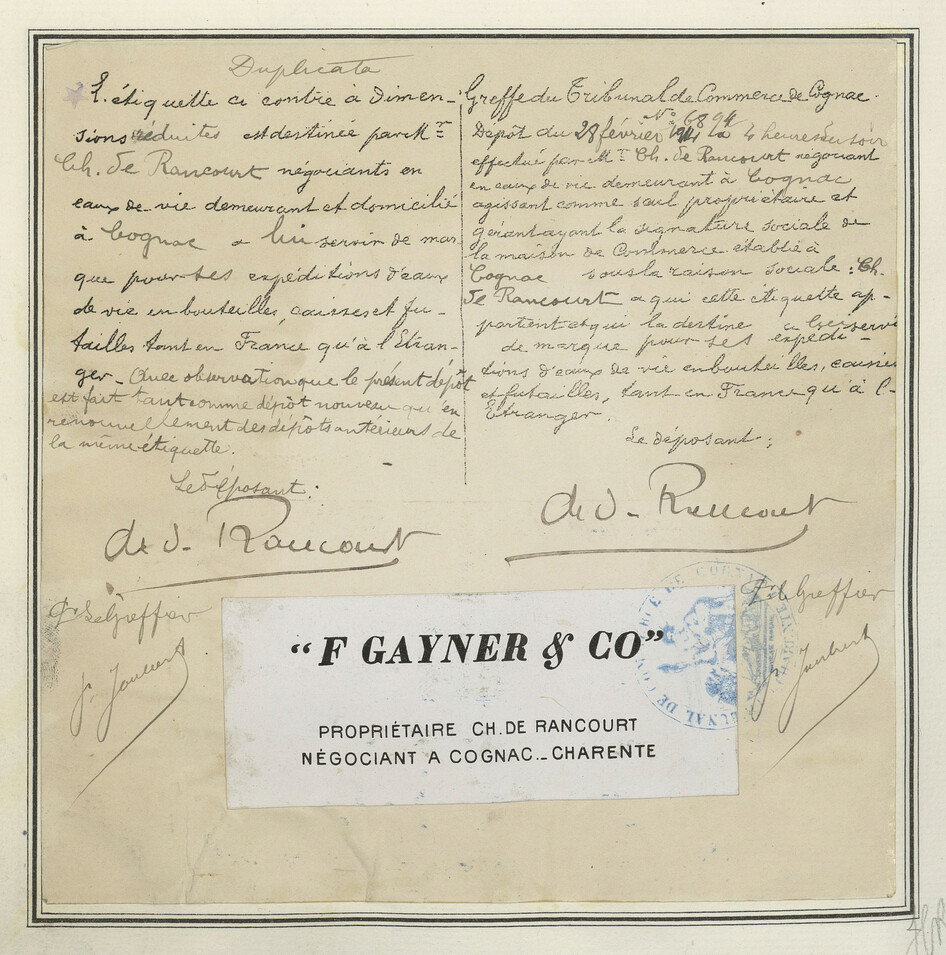 Duplicata
L'étiquette ci contre à dimen-
sions réduites est destinée par Mr
Ch. de Rancourt négociants en
eaux de vie demeurant et domicilié
à Cognac a lui servir de mar-
que pour ses expéditions d'eaux
de vie en bouteilles, caisses et fu-
tailles tant en France qu'à l'Etran-
ger_ Avec observation que le présent dépôt
est fait tant comme dépôt nouveau qu'en
renouvellement des dépôts antérieurs de
la même étiquette.
Le déposant:
de V- Rancourt
Le Greffier
Greffe du Tribunal de Commerce de Cognac.
No 6894
Dépôt du 28 février 1914 à 4 heures du soir
effectué par Mr Ch. de Rancourt négociant
en eaux de vie demeurant à Cognac
agissant comme seul propriétaire et
gérant ayant la signature sociale de
la maison de Commerce établie à
Cognac sous la raison sociale: Ch.
de Rancourt a qui cette étiquette ap-
partient et qui la destine a lui servir
de marque pour ses expédi-
tions d'eaux de vie en bouteilles, caisses
et futailles, tant en France qu'à l'
Etranger.
Le déposant:
de V- Rancourt
Le Greffier
"F GAYNER & CO"
PROPRIÉTAIRE CH. DE RANCOURT
NÉGOCIANT A COGNAC._ CHARENTE